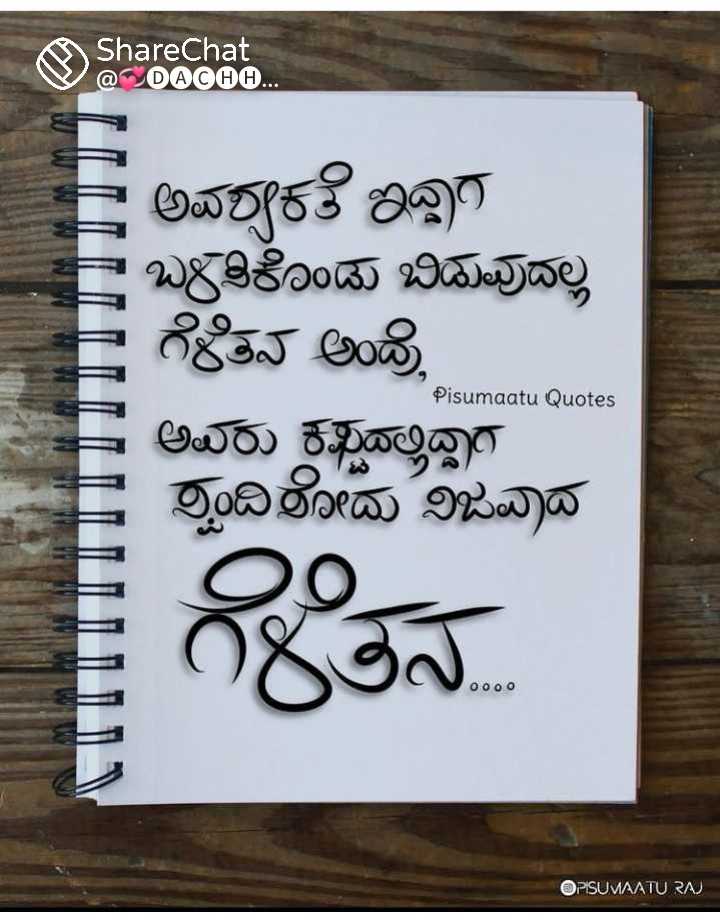 ShareChat
@💞🅓🅐🅒🅗🅗...
ಅವಶ್ಯಕತೆ ಇದ್ದಾಗ
ಬಳಸಿಕೊಂಡು ಬಿಡುವುದಲ್ಲ
ಗೆಳೆತನ ಅಂದ್ರೆ,
Pisumaatu Quotes
ಅವರು ಕಷ್ಟದಲ್ಲಿದ್ದಾಗ
ಸ್ಪಂದಿಸೋದು ನಿಜವಾದ
ಗೆಳೆತನ....
PISUMAATU RAJ